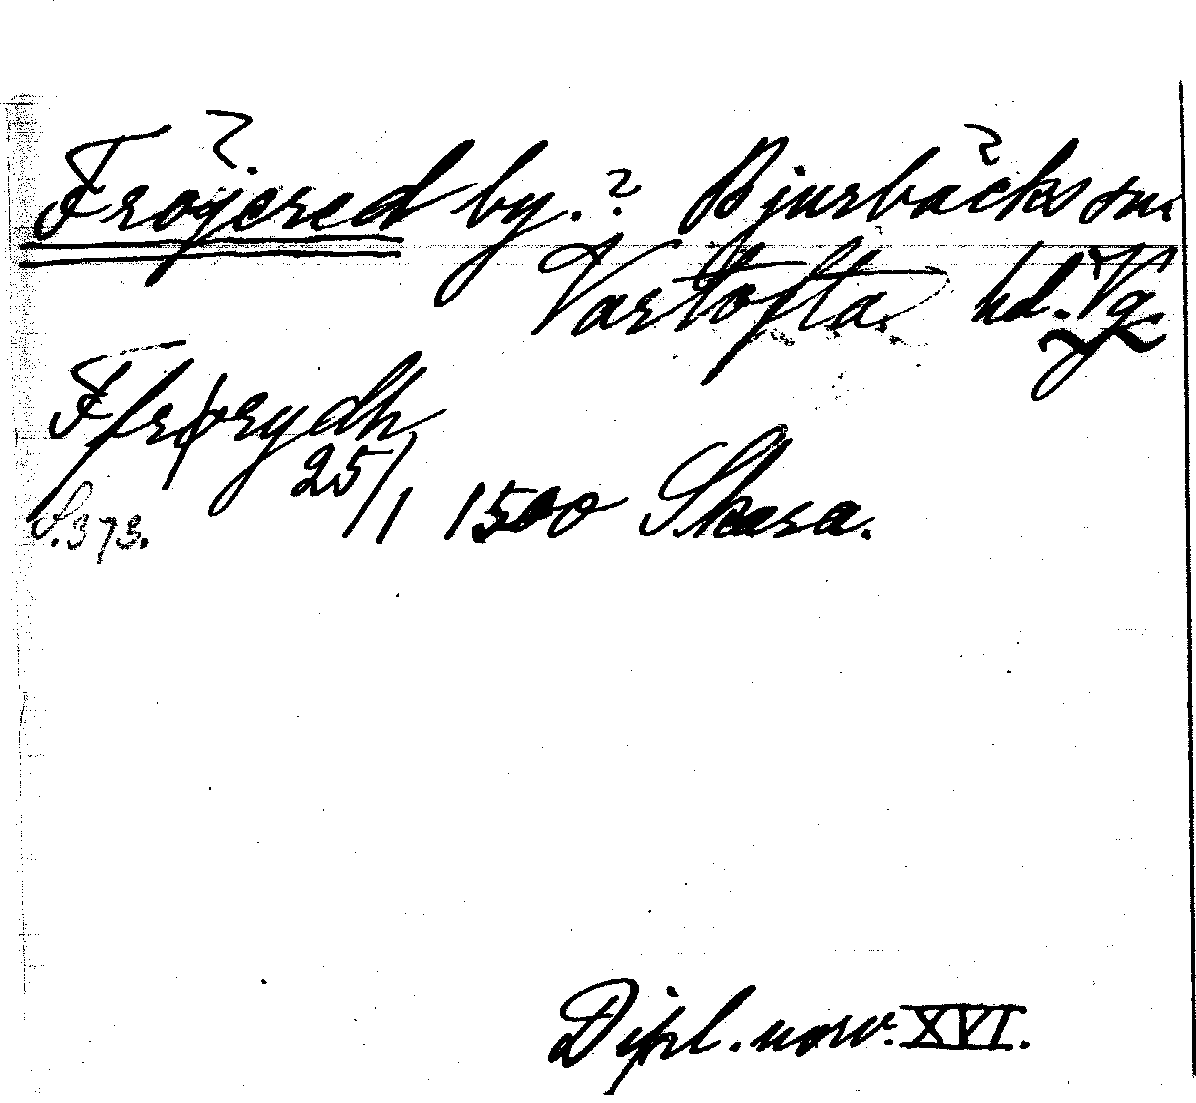 Fröjered by. ? Bjurbäcks sn.
Vartofta hd. Vg
Ffrørydh
25/1 1500 Skara.
S. 373.
Dipl. norv. XVI.